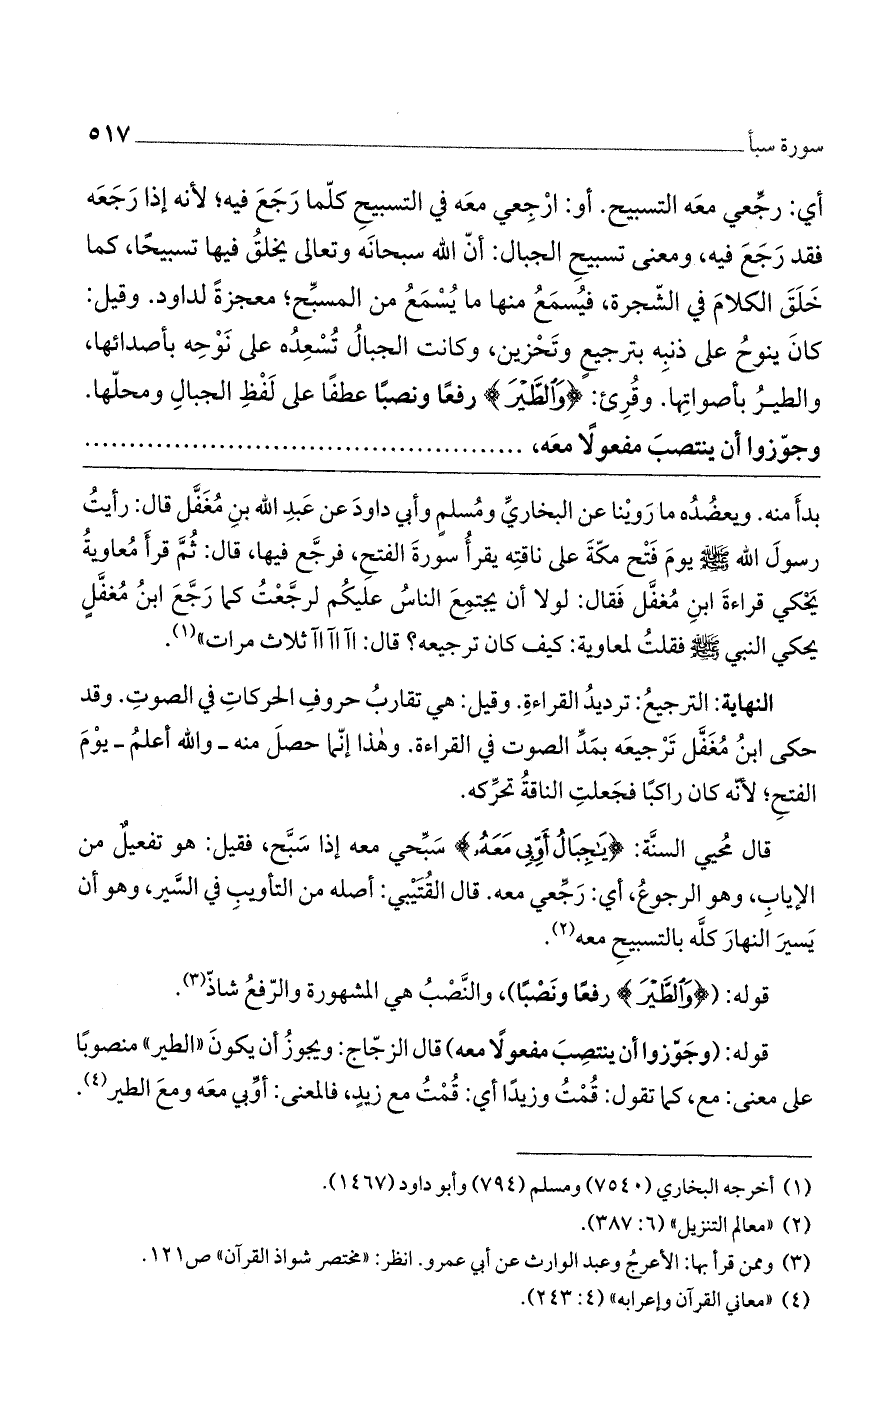 سورة سبأ ٥١٧
أي: رجِّعي معَه التسبيح. أو: ارْجِعي معَه في التسبيحِ كلّما رَجَعَ فيه؛ لأنه إذا رَجَعَه
فقد رَجَعَ فيه، ومعنى تسبيحِ الجبال: أنّ الله سبحانَه وتعالى يخلقُ فيها تسبيحًا، كما
خَلَقَ الكلامَ في الشّجرة، فيُسمَعُ منها ما يُسْمَعُ من المسبِّح؛ معجزةً لداود. وقيل:
كانَ ينوحُ على ذنبِه بترجيعٍ وتَحْزين، وكانت الجبالُ تُسْعِدُه على نَوْحِه بأصدائها،
والطيرُ بأصواتِها. وقُرِئ: ﴿وَٱلطَّيْرَ﴾ رفعًا ونصبًا عطفًا على لَفْظِ الجبالِ ومحلّها.
وجوّزوا أن ينتصبَ مفعولًا معَه، ................................................
بدأَ منه. ويعضُدُه ما رَوِيْنا عن البخاريِّ ومُسلمٍ وأبي داودَ عن عَبدِ الله بنِ مُغَفَّل قال: رأيتُ
رسولَ الله ﷺ يومَ فَتْح مكّةَ على ناقتِه يقرأُ سورةَ الفتحِ، فرجَّع فيها، قال: ثُمَّ قرأَ مُعاويةُ
يَحْكي قراءةَ ابنِ مُغفَّل فَقال: لولا أن يجتمِعَ الناسُ عليكُم لرجَّعْتُ كما رَجَّعَ ابنُ مُغفَّلٍ
يحكي النبي ﷺ فقلتُ لمعاوية: كيف كان ترجيعه؟ قال: اآ اآ اآ ثلاث مرات»(١).
النهاية: الترجيعُ: ترديدُ القراءةِ. وقيل: هي تقاربُ حروفِ الحركاتِ في الصوتِ. وقد
حكى ابنُ مُغَفَّل تَرْجيعَه بمَدِّ الصوت في القراءة. وهٰذا إنّما حصلَ منه ـ والله أعلمُ ـ يوْمَ
الفتحِ؛ لأنّه كان راكبًا فجَعلتِ الناقةُ تحرِّكه.
قال مُحيي السنَّة: ﴿يَـٰجِبَالُ أَوِّبِى مَعَهُۥ﴾ سَبِّحي معه إذا سَبَّح، فقيل: هو تفعيلٌ من
الإيابِ، وهو الرجوعُ، أي: رَجِّعي معه. قال القُتَيْبي: أصله من التأويبِ في السَّير، وهو أن
يَسيرَ النهارَ كلَّه بالتسبيحِ معه(٢).
قوله: (﴿وَٱلطَّيْرَ﴾ رفعًا ونَصْبًا)، والنَّصْبُ هي المشهورة والرّفعُ شاذّ(٣).
قوله: (وجَوّزوا أن ينتصِبَ مفعولًا معه) قال الزجّاج: ويجوزُ أن يكونَ «الطير» منصوبًا
على معنى: مع، كما تقول: قُمْتُ وزيدًا أي: قُمْتُ مع زيدٍ، فالمعنى: أوِّبي معَه ومعَ الطير(٤).
(١) أخرجه البخاري (٧٥٤٠) ومسلم (٧٩٤) وأبو داود (١٤٦٧).
(٢) «معالم التنزيل» (٦: ٣٨٧).
(٣) وممن قرأ بها: الأعرجُ وعبد الوارث عن أبي عمرو. انظر: «مختصر شواذ القرآن» ص١٢١.
(٤) «معاني القرآن وإعرابه» (٤: ٢٤٣).